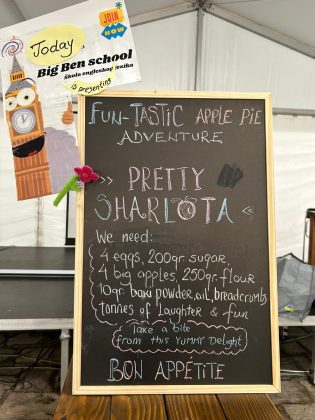 JOIN
NOW
Today
Big Ben school
Škola engleskog jezika
is presenting
FUN-TASTIC APPLE PIE
ADVENTURE
>> PRETTY
SHARLOTA <<
We need:
4 eggs, 200gr. sugar,
4 big apples, 250gr. flour
10gr. baki powder, oil, breadcrumb,
tonnes of laughter & fun
Take a bite
from this YUMMY Delight
BON APPÉTITE